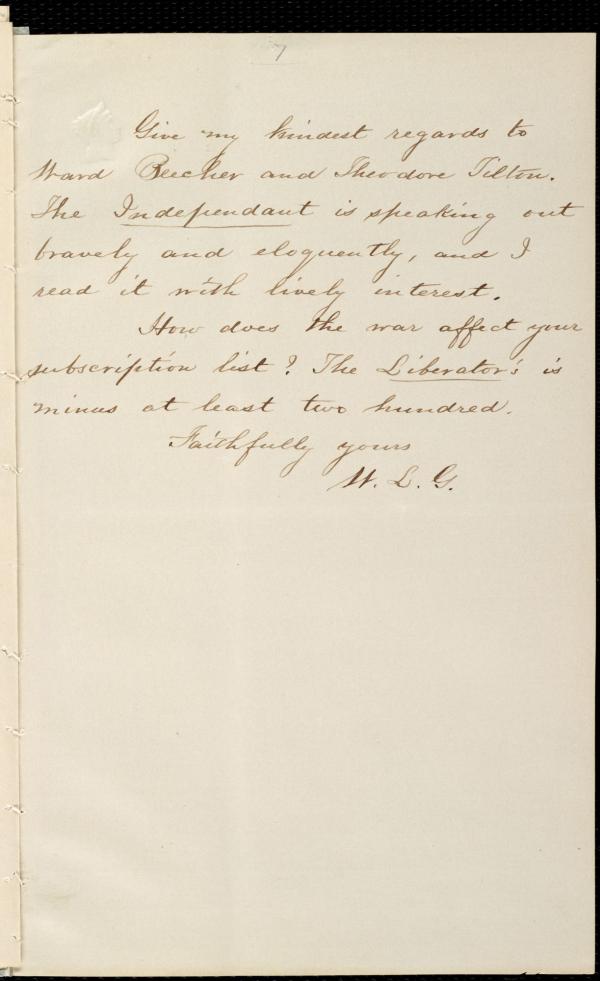 7
Give my kindest regards to
Ward Beecher and Theodore Tilton.
The Independant is speaking out
bravely and eloquently, and I
read it with lively interest.
How does the war affect your
subscription list? The Liberator's is
minus at least two hundred.
Faithfully yours
W. L. G.